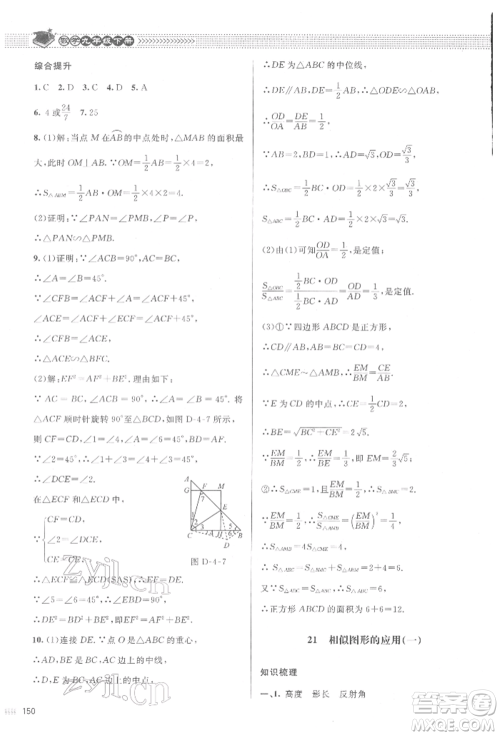 数学九年级下册
综合提升
1. C  2. D  3. C  4. D  5. A
6. 4或24/7  7. 25
8. (1)解：当点 M 在AB的中点处时，△MAB 的面积最
大，此时 OM⊥AB. ∵OM=1/2AB=1/2×4=2，
∴S△ABM=1/2AB·OM=1/2×4×2=4.
(2)证明：∵∠PAN=∠PMB，∠P=∠P，
∴△PAN∽△PMB.
9. (1)证明：∵AC=BC，∠ACB=90°，
∴∠A=∠B=45°.
∵∠CFB=∠ACF+∠A=∠ACF+45°，
∠ACE=∠ACF+∠ECF=∠ACF+45°，
∴∠CFB=∠ACE，
∴△ACE∽△BFC.
(2)解：EF²=AF²+BE². 理由如下：
∵AC=BC，∠ACB=90°，∴将
△ACF 顺时针旋转 90°至△BCD，
∴CF=CD，∠1=∠4，∠A=∠6=45°，BD=AF.
∵∠2=45°，∴∠1+∠3=∠3+∠4=45°，
∴∠DCE=∠2.
在△ECF 和△ECD 中，
∵ CF=CD，
∠2=∠DCE，
CE=CE，
A
G
F
E
C
B
D
图 D-4-7
∴△ECF≌△ECD(SAS)，∴EF=DE.
∵∠5=45°，∠6=45°，∴∠DBE=90°，
∴DE²=BD²+BE²，∴EF²=AF²+BE².
10. (1)连接 DE. ∵点 O 是△ABC 的重心，
∴AD，BE 是 BC，AC 边上的中线，
∴D，E 为 BC，AC 边上的中点，
150
∴DE 为△ABC 的中位线，
∴DE∥AB，DE=1/2AB，
∴△ODE∽△OAB，∴OD/OA=DE/AB=1/2.
∵AB=2，BD=1，∠ADB=90°，
∴AD=√3，OD=√3/3，
∴S△OBC=1/2BC·OD=1/2×2×√3/3=√3/3，
S△ABC=1/2BC·AD=1/2×2×√3=√3.
(2)由(1)可知OD/OA=1/2，是定值；
S△OBC/S△ABC=(1/2BC·OD)/(1/2BC·AD)=OD/AD=1/3，是定值.
(3)①∵四边形 ABCD 是正方形，
∴CD∥AB，AB=BC=CD=4，
∴△CME∽△AMB，∴EM/BM=CE/AB.
∵E 为 CD 的中点，∴CE=1/2CD=2，
∴BE=√BC²+CE²=2√5.
∴EM/BM=1/2，∴EM/BE=1/3，即EM=2/3√5.
②∵S△CME=1，且EM/BM=1/2，∴S△BMC=2.
∵S△CME/S△AMB=(EM/BM)²=1/4，
∴S△AMB=4，
∴S△ABC=S△BMC+S△ABM=2+4=6.
又∵S△ADC=S△ABC，∴S△ADC=6，
∴正方形 ABCD 的面积为 6+6=12.
21 相似图形的应用(一)
知识梳理
一、1. 高度 影长 反射角
zyjl.cn
答案圈
MXQE.COM